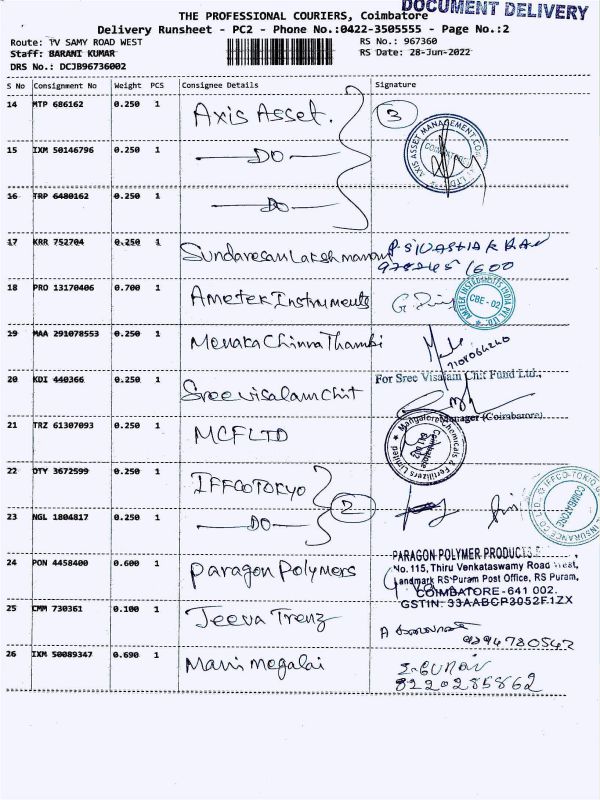 DOCUMENT DELIVERY
THE PROFESSIONAL COURIERS, Coimbatore
Delivery Runsheet - PC2 - Phone No.:0422-3505555 - Page No.:2
Route: TV SAMY ROAD WEST RS No.: 967360
Staff: BARANI KUMAR RS Date: 28-Jun-2022
DRS No.: DCJB96736002
S No Consignment No Weight PCS Consignee Details Signature
14 MTP 686162 0.250 1 Axis Asset. 3
15 IXM 50146796 0.250 1 DO
AXIS ASSET MANAGEMENT CO. LTD. COIMBATORE
16 TRP 6480162 0.250 1 DO
17 KRR 752704 0.250 1 Sundaresan Lakshmanan
18 PRO 13170406 0.700 1 Ametek Instruments
AMETEK INSTRUMENTS INDIA PVT. LTD. CBE - 02
19 MAA 291078553 0.250 1 Menaka Chinna Thambi
20 KDI 440366 0.250 1 Sree visalam chit
For Sree Visalam Chit Fund Ltd.,
Manager (Coimbatore)
21 TRZ 61307093 0.250 1 MCF LTD
Mangalore Chemicals & Fertilizers Limited Coimbatore
22 DTY 3672599 0.250 1 IFFCO TOKYO 2
23 NGL 1804817 0.250 1 DO
IFFCO-TOKIO INSURANCE CO LTD. COIMBATORE
24 PON 4458400 0.600 1 Paragon Polymers
PARAGON POLYMER PRODUCTS
No. 115, Thiru Venkataswamy Road West,
Landmark RS Puram Post Office, RS Puram,
COIMBATORE - 641 002.
GSTIN: 33AABCP3052F1ZX
25 CMM 730361 0.100 1 Jeeva Trenz
26 IXM 50089347 0.690 1 Mani megalai
8220285862